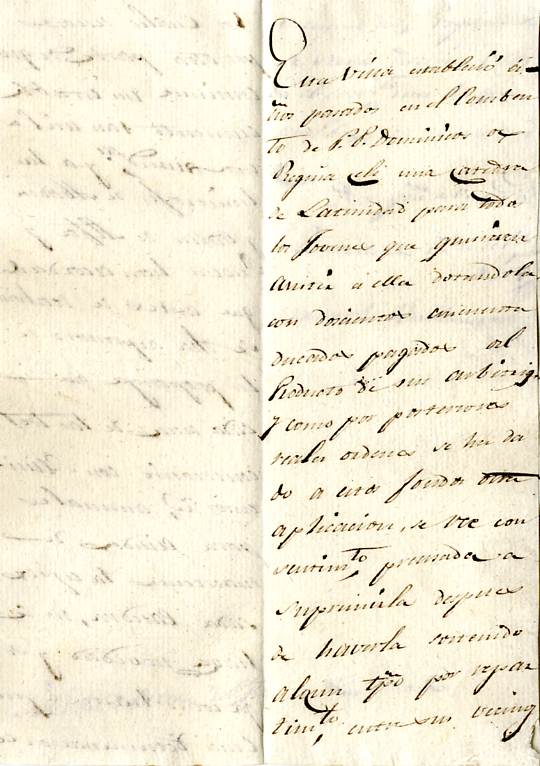 Esta Villa establecio a-
ños pasados en el Comben
to de P.P. Dominicos de
Regina Celi una catedra
de Latinidad para todos
los Jovenes que quisiesen
asistir a ella dotandola
con doscientos cinquenta
ducados pagados del
Producto de sus arbitrios
y como por posteriores
reales ordenes se ha da
do a esos fondos otra
aplicacion, se ve con
sentimto, precisada a
suprimirla despues
de haverla sostenido
algun tpo por repar
timto, entre sus vecinos